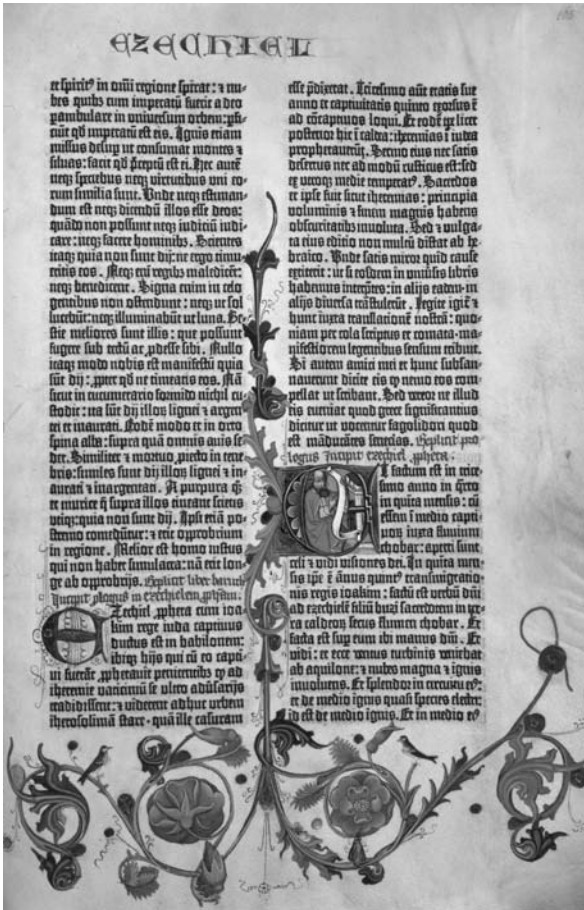 EZECHIEL
et spiritꝰ in omni regione spirat: et nu-
bes quibꝫ cum imperatū fuerit a deo
perambulare in universum orbem: ꝑfi-
ciūt qd̄ imperatū est eis. Ignis etiam
missus desuꝑ ut consumat montes et
silvas: facit qd̄ p̄ceptū est ei. Hec autē
neqꝫ speciebus neqꝫ virtutibus uni eo-
rum similia sunt. Unde neqꝫ estiman-
dum est neqꝫ dicendū illos esse deos:
quādo non possunt neqꝫ iudiciū iudi-
care: neqꝫ facere hominibꝫ. Scientes
itaqꝫ quia non sunt dij: ne ergo timu-
eritis eos. Neqꝫ em̄ regibꝫ maledicēt:
neqꝫ benedicent. Signa etiam in celo
gentibus non ostendunt: neqꝫ ut sol
lucebūt: neqꝫ illuminabūt ut luna. Be-
stie meliores sunt illis: que possunt
fugere sub tectū ac ꝓdesse sibi. Nullo
itaqꝫ modo nobis est manifestū quia
sūt dij: ꝓpter qd̄ ne timeatis eos. Nā
sicut in cucumerario formido nichil cu-
stodit: ita sūt dij illoꝝ lignei et argen-
tei et inaurati. Eodē modo et in orto
spina alba: supra quā omnis avis se-
det. Similiter et mortuo ꝓiecto in tene-
bris: similes sunt dij illoꝝ lignei et in-
aurati et inargentati. A purpura qꝫ
et murice
supra illos
scietis
itaqꝫ: quia non sunt dij. Ipsi etiā po-
stremo comedūtur: et erit opprobrium
in regione. Melior est homo iustus
qui non habet simulacra: nā erit lon-
ge ab opprobrijs. Explicit liber baruch
Incipit ꝓlogus in ezechielem ꝓphetam.
Ezechiel ꝓpheta cum ioa-
kim rege iuda captivus
ductus est in babilonem:
ibiqꝫ hijs qui cū eo capti-
vi fuerāt ꝓphetavit penitentibꝫ ꝙ ad
iheremie vaticiniū se ultro adūsarijs
tradidissent: et viderent adhuc urbem
iherosolimā stare: quā ille casuram
esse p̄dixerat. Tricesimo autē etatis sue
anno et captivitatis quinto exorsus ē
ad cōcaptivos loqui. Et eodē tꝑe licet
posterior hic ī caldea: iheremias ī iudea
prophetaverūt. Sermo eius nec satis
disertus nec ad modū rusticus est: sed
ex utroqꝫ medie temperatꝰ. Sacerdos
et ipse sicut iheremias: principia
voluminis et finem magnis habens
obscuritatibꝫ involuta. Sed et vulga-
ta eius editio non multū distat ab he-
braico. Unde satis miror quid cause
extiterit: ut si eosdem in universis libris
habemus interp̄tes: in alijs eadem in
alijs diversa trāstulerūt. Legite igit et
hunc iuxta translationē nostrā: quo-
niam per cola scriptus et comata ma-
nifestiorem legentibus sensum tribuit.
Si autem amici mei et hunc subsan-
naverint: dicite eis ꝙ nemo eos com-
pellat ut scribant. Sed vereor ne illud
eis eveniat quod grece significantius
dicitur: ut vocentur fagolidori quod
est māducātes senecias. Explicit pro-
logus Incipit ezechiel ꝓpheta.
Et factum est in trice-
simo anno in q̄rto
in quīta mensis: cū
essem ī medio capti-
vorū iuxta fluvium
chobar: aperti sunt
celi et vidi visiones dei. In quīta men-
sis ip̄e ē annus quintꝰ transmigratio-
nis regis ioakim: factū est verbū dn̄i
ad ezechielē filiū buzi sacerdotem in ter-
ra caldeoꝝ secus flumen chobar. Et
facta est suꝑ eum ibi manus dn̄i. Et
vidi: et ecce ventus turbinis veniebat
ab aquilone: et nubes magna et ignis
involvens. Et splendor in circuitu eiꝰ:
et de medio ignis quasi species electri:
id est de medio ignis. Et in medio eiꝰ